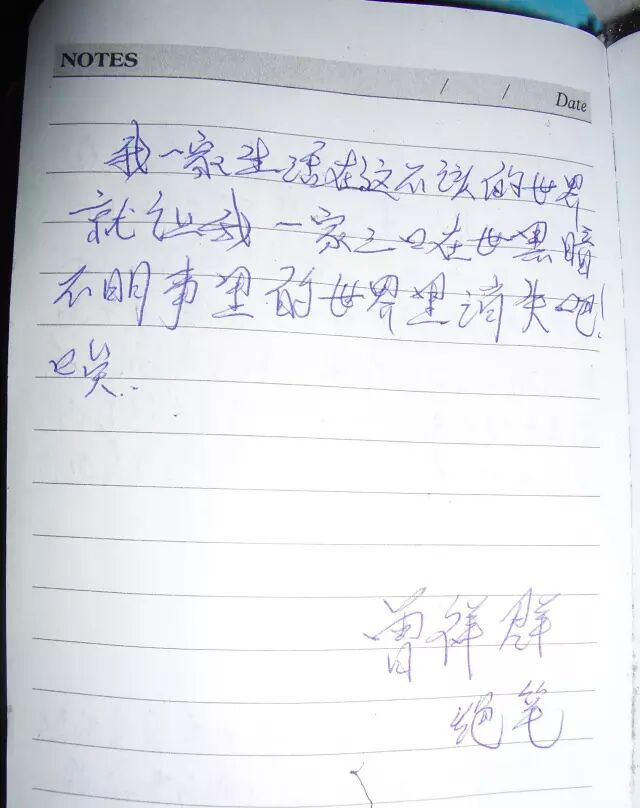 NOTES
/ / Date
我一家生活在这不该的世界
就让我一家三口在世黑暗
不明事里的世界里消失吧!
唉..
曾祥群
绝笔